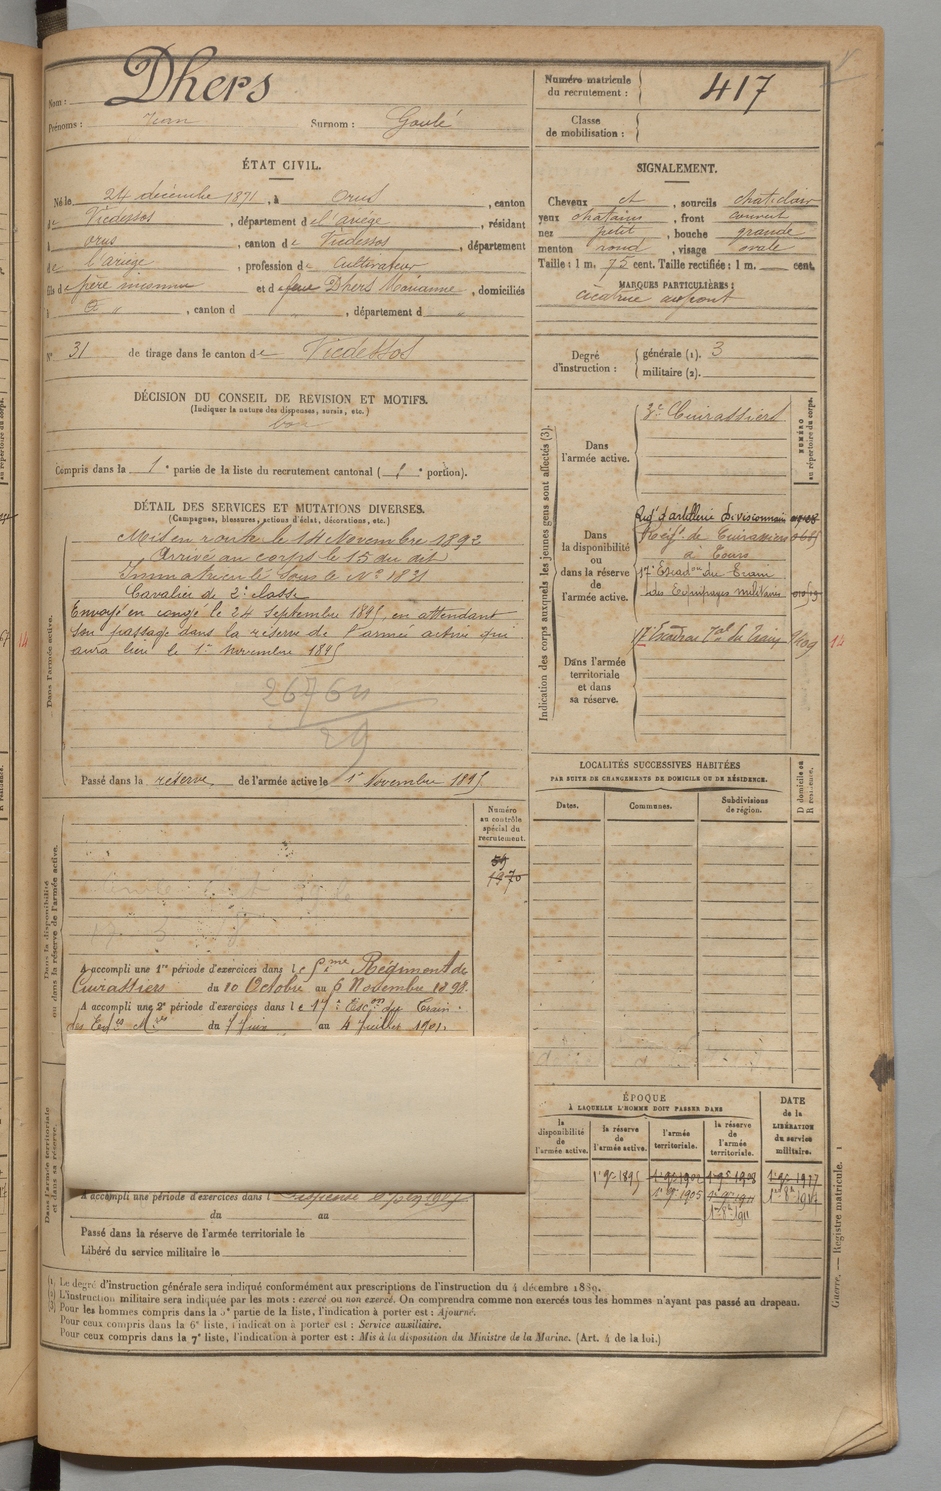 Nom : Dhers
Prénoms : Jean Surnom : Goulé
ÉTAT CIVIL.
Né le 24 décembre 1871, à Orus, canton
de Vicdessos, département de l'ariège, résidant
à orus, canton de Vicdessos, département
de l'ariège, profession de cultivateur
fils de père inconnu et de feue Dhers Marianne, domiciliés
à " , canton d " , département d "
N° 31 de tirage dans le canton de Vicdessos
DÉCISION DU CONSEIL DE REVISION ET MOTIFS.
(Indiquer la nature des dispenses, sursis, etc.)
bon
Compris dans la 1e partie de la liste du recrutement cantonal ( 1e portion).
DÉTAIL DES SERVICES ET MUTATIONS DIVERSES.
(Campagnes, blessures, actions d'éclat, décorations, etc.)
Dans l'armée active.
Mis en route le 14 Novembre 1892
Arrivé au corps le 15 du dit
Immatriculé sous le N° 1831
Cavalier de 2e classe
Envoyé en congé le 24 Septembre 1895, en attendant
son passage dans la réserve de l'armée active qui
aura lieu le 1er Novembre 1895
29
Passé dans la réserve de l'armée active le 1er Novembre 1895
Numéro
au contrôle
spécial du
recrutement.
59
1970
Dans la disponibilité
ou dans la réserve de l'armée active.
A accompli une 1re période d'exercices dans le Régiment de
Cuirassiers du 10 Octobre au 6 Novembre 1898.
A accompli une 2e période d'exercices dans le 17e Escon du Train
des Eqges Mres du 7 Juin au 4 Juillet 1901.
Dans l'armée territoriale
et dans sa réserve.
A accompli une période d'exercices dans l
du au
Passé dans la réserve de l'armée territoriale le
Libéré du service militaire le
Numéro matricule
du recrutement : 417
Classe
de mobilisation :
SIGNALEMENT.
Cheveux et, sourcils chat. clair
yeux chatains, front couvert
nez petit, bouche grande
menton rond, visage ovale
Taille : 1 m. 75 cent. Taille rectifiée : 1 m. cent.
MARQUES PARTICULIÈRES :
cicatrice au front
Degré
d'instruction :
générale (1). 3
militaire (2).
Indication des corps auxquels les jeunes gens sont affectés (3).
NUMÉRO
au répertoire du corps.
Dans
l'armée active.
3e Cuirassiers
Dans
la disponibilité
ou
dans la réserve
de
l'armée active.
Régt d'artillerie Divisionnaire
Régt de Cuirassiers
à Tours
17e Escadon du Train
des Equipages militaires
Dans l'armée
territoriale
et dans
sa réserve.
17e Escadron Tal du Train
14
LOCALITÉS SUCCESSIVES HABITÉES
PAR SUITE DE CHANGEMENTS DE DOMICILE OU DE RÉSIDENCE.
Dates.
Communes.
Subdivisions
de région.
D domicile ou
R résidence.
ÉPOQUE
À LAQUELLE L'HOMME DOIT PASSER DANS
DATE
de la
LIBÉRATION
du service
militaire.
la
disponibilité
de
l'armée active.
la réserve
de
l'armée active.
l'armée
territoriale.
la réserve
de
l'armée
territoriale.
1er 9bre 1895
1er 9bre 1905
(1) Le degré d'instruction générale sera indiqué conformément aux prescriptions de l'instruction du 4 décembre 1889.
(2) L'instruction militaire sera indiquée par les mots : exercé ou non exercé. On comprendra comme non exercés tous les hommes n'ayant pas passé au drapeau.
(3) Pour les hommes compris dans la 5e partie de la liste, l'indication à porter est : Ajourné.
Pour ceux compris dans la 6e liste, l'indication à porter est : Service auxiliaire.
Pour ceux compris dans la 7e liste, l'indication à porter est : Mis à la disposition du Ministre de la Marine. (Art. 4 de la loi.)
Guerre. — Registre matricule. 1